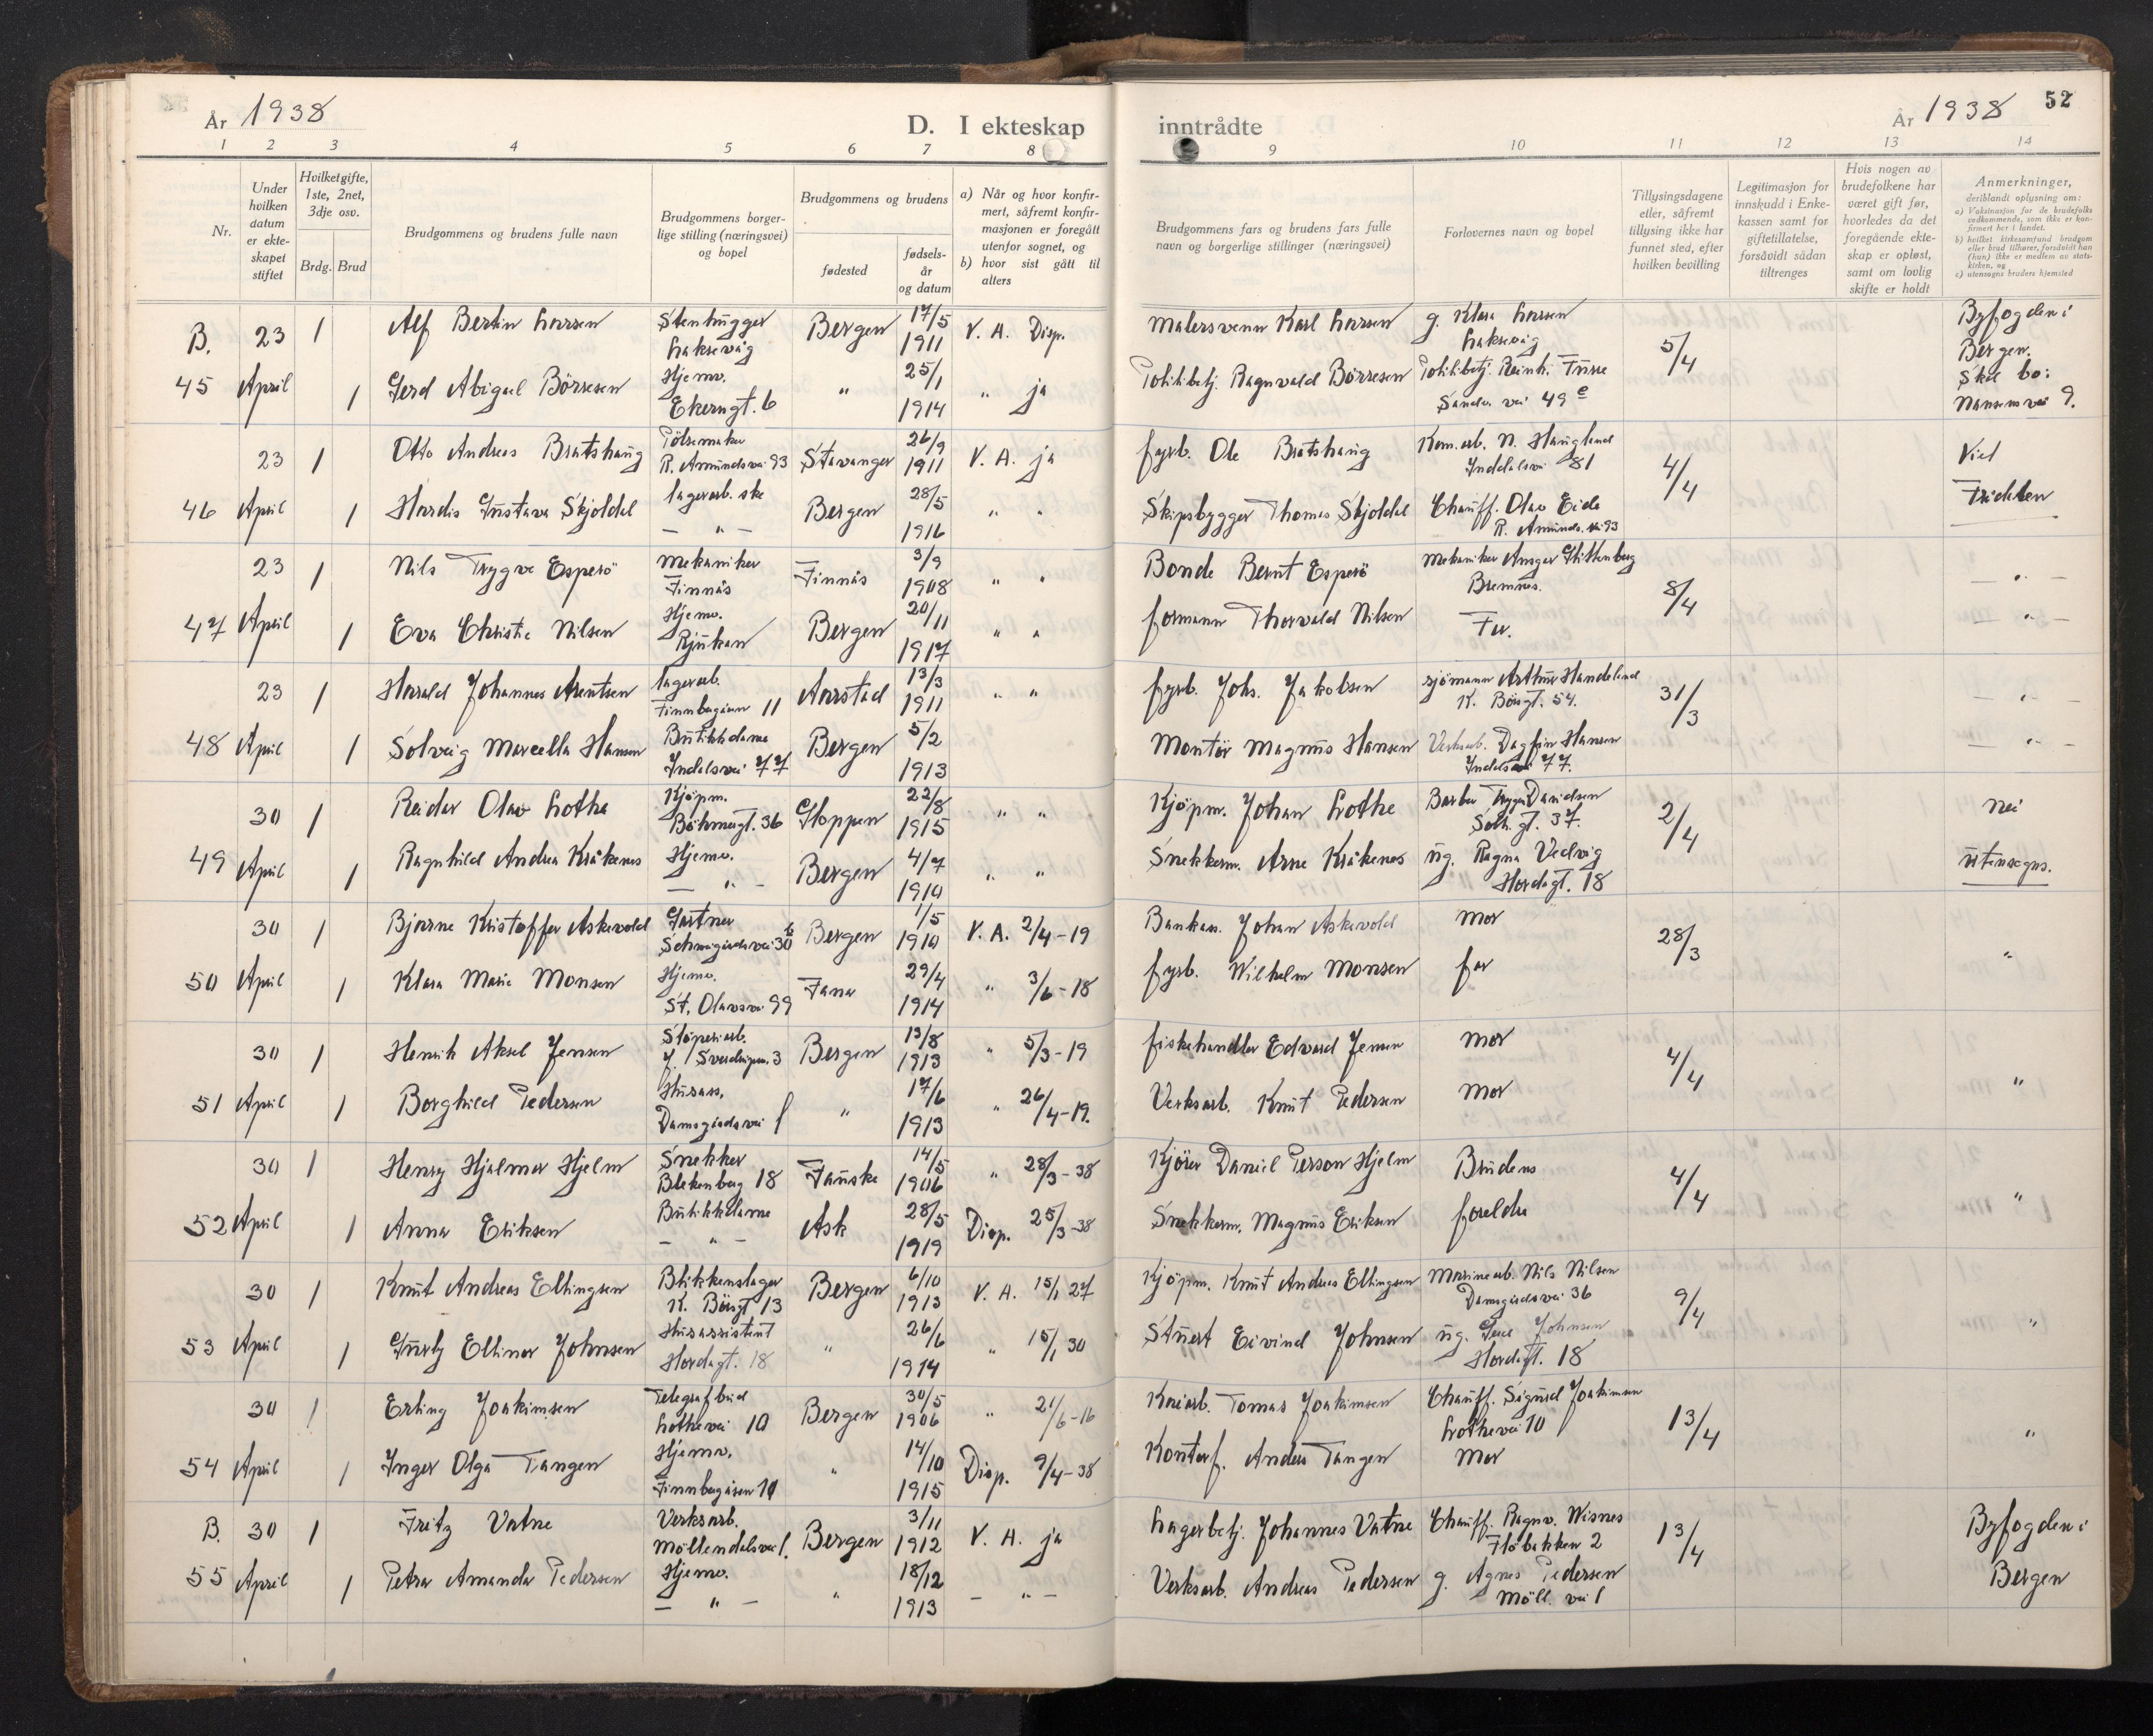 År 1938
D. I ekteskap inntrådte
År 1938
52
1 2 3 4 5 6 7 8 9 10 11 12 13 14
Nr.
Under hvilken datum er ekteskapet stiftet
Hvilket gifte, 1ste, 2net, 3dje osv.
Brdg. Brud
Brudgommens og brudens fulle navn
Brudgommens borgerlige stilling (næringsvei) og bopel
Brudgommens og brudens
fødested
fødselsår og datum
a) Når og hvor konfirmert, såfremt konfirmasjonen er foregått utenfor sognet, og
b) hvor sist gått til alters
Brudgommens fars og brudens fars fulle navn og borgerlige stillinger (næringsvei)
Forlovernes navn og bopel
Tillysingsdagene eller, såfremt tillysing ikke har funnet sted, efter hvilken bevilling
Legitimasjon for innskudd i Enkekassen samt for giftetillatelse, forsåvidt sådan tiltrenges
Hvis nogen av brudefolkene har været gift før, hvorledes da det foregående ekteskap er opløst, samt om lovlig skifte er holdt
Anmerkninger, deriblandt oplysning om:
a) Vaksinasjon for de brudefolks vedkommende, som ikke er konfirmert her i landet.
b) hvilket kirkesamfund brudgom eller brud tilhører, forsåvidt han (hun) ikke er medlem av statskirken, og
c) utensogns bruders hjemsted
B. 23 1 Alf Bertin Larsen Stenhugger Laksevåg Bergen 17/5 1911 V. A. Disp. Malersvenn Karl Larsen g. Klara Larsen Laksevåg 5/4 Byfogden i Bergen.
45 April 1 Gerd Abigael Börresen Hjemv. Ekerngt. 6 " 25/1 1914 " ja Politibetj. Ragnvald Börresen Politibetj. Reinh. Furre Sandv. vei 49 e Skal bo: Nansens vei 9.
23 1 Otto Andreas Bratshaug Pölsemaker R. Amundsvei 93 Stavanger 26/9 1911 V. A. ja fyrb. Ole Bratshaug Kom.arb. N. Haugland Inddalsvei 81 4/4 Viet
46 April 1 Hardis Gustava Skjoldal lagerarb. ske — " — Bergen 28/5 1916 " " Skipsbygger Thomas Skjoldal Chauff. Olav Eide R. Amunds. vei 93 Fridalen
23 1 Nils Trygve Esperö Mekaniker Finnås Finnås 3/9 1908 " " Bonde Bernt Esperö Mekaniker Ansgar Bremnes. 8/4 — " —
47 April 1 Eva Christie Nilsen Hjemv. Rjukan Bergen 20/11 1917 " " formann Thorvald Nilsen Far. — " —
23 1 Harald Johannes Arentsen lagerarb. Finnbergåsen 11 Aarstad 13/3 1911 " " fyrb. Johs. Jakobsen sjömann Arthur Handeland K. Börsgt. 54. 31/3 — " —
48 April 1 Solveig Marcella Hansen Butikkdame Indalsvei 77 Bergen 5/2 1913 Montör Magnus Hansen Verksarb. Dagfin Hansen Indalsvei 77. — " —
30 1 Reidar Olav Lothe Kjöpm. Böhmergt. 36 Gloppen 22/8 1915 " " Kjöpm. Johan Lothe Barber Trygve Davidsen Solh.gt. 37. 2/4 nei
49 April 1 Ragnhild Andrea Kråkenes Hjemv. — " — Bergen 4/7 1910 " " Snekkerm. Arne Kråkenes ug. Ragna Vedvig Hordagt. 18 utensogns.
30 1 Bjarne Kristoffer Askevold Gartner 30 b Bergen 1/5 1910 V. A. 2/4-19 Bankass. Johan Askevold Mor 28/3 "
50 April 1 Klara Marie Monsen Hjemv. St. Olavsvei 99 Fana 29/4 1914 " 3/6-18 fyrb. Wilhelm Monsen far
30 1 Henrik Aksel Jensen Stöperiarb. J. Sverdrupsv. 3 Bergen 13/8 1913 " 5/3-19 fiskehandler Edvard Jensen Mor 4/4 "
51 April 1 Borghild Pedersen Husass. Damsgårdsvei 1 " 17/6 1913 " 26/4-19. Verksarb. Knut Pedersen Mor
30 1 Henry Hjalmar Hjelm Snekker Blekenberg 18 Fauske 14/5 1906 " 28/3-38 Kjörer Daniel Person Hjelm Brudens 4/4 "
52 April 1 Anna Eriksen Butikkdame — " — Ask 28/5 1919 Disp. 25/3-38 Snekkerm. Magnus Eriksen foreldre
30 1 Knut Andreas Ellingsen Blikkenslager K. Börsgt 13 Bergen 6/10 1913 V. A. 15/1 27 Kjöpm. Knut Andreas Ellingsen Marinearb. Nils Nilsen Damsgårdsvei 36 9/4 "
53 April 1 Gurly Ellinor Johnsen Husassistent Hordagt. 18 " 26/6 1914 " 15/1 30 Stuert Eivind Johnsen ug. Johnsen Hordagt. 18
30 1 Erling Joakimsen Telegrafbud Lothevei 10 Bergen 30/5 1906 " 21/6-16 Kaiarb. Tomas Joakimsen Chauff. Sigurd Joakimsen Lothevei 10 13/4 "
54 April 1 Inger Olga Tangen Hjemv. Finnbergåsen 10 " 14/10 1915 Disp. 9/4-38 Kontorf. Anders Tangen Mor
B. 30 1 Fritz Vatne Verksarb. Möllendalsvei 1. Bergen 3/11 1912 V. A. ja Lagerbetj. Johannes Vatne Chauff. Ragnv. Wisnes Flöbakken 2 13/4 Byfogden i
55 April 1 Petra Amanda Pedersen Hjemv. — " — " 18/12 1913 — " — Verksarb. Andreas Pedersen g. Agnes Pedersen Möll. vei 1 Bergen